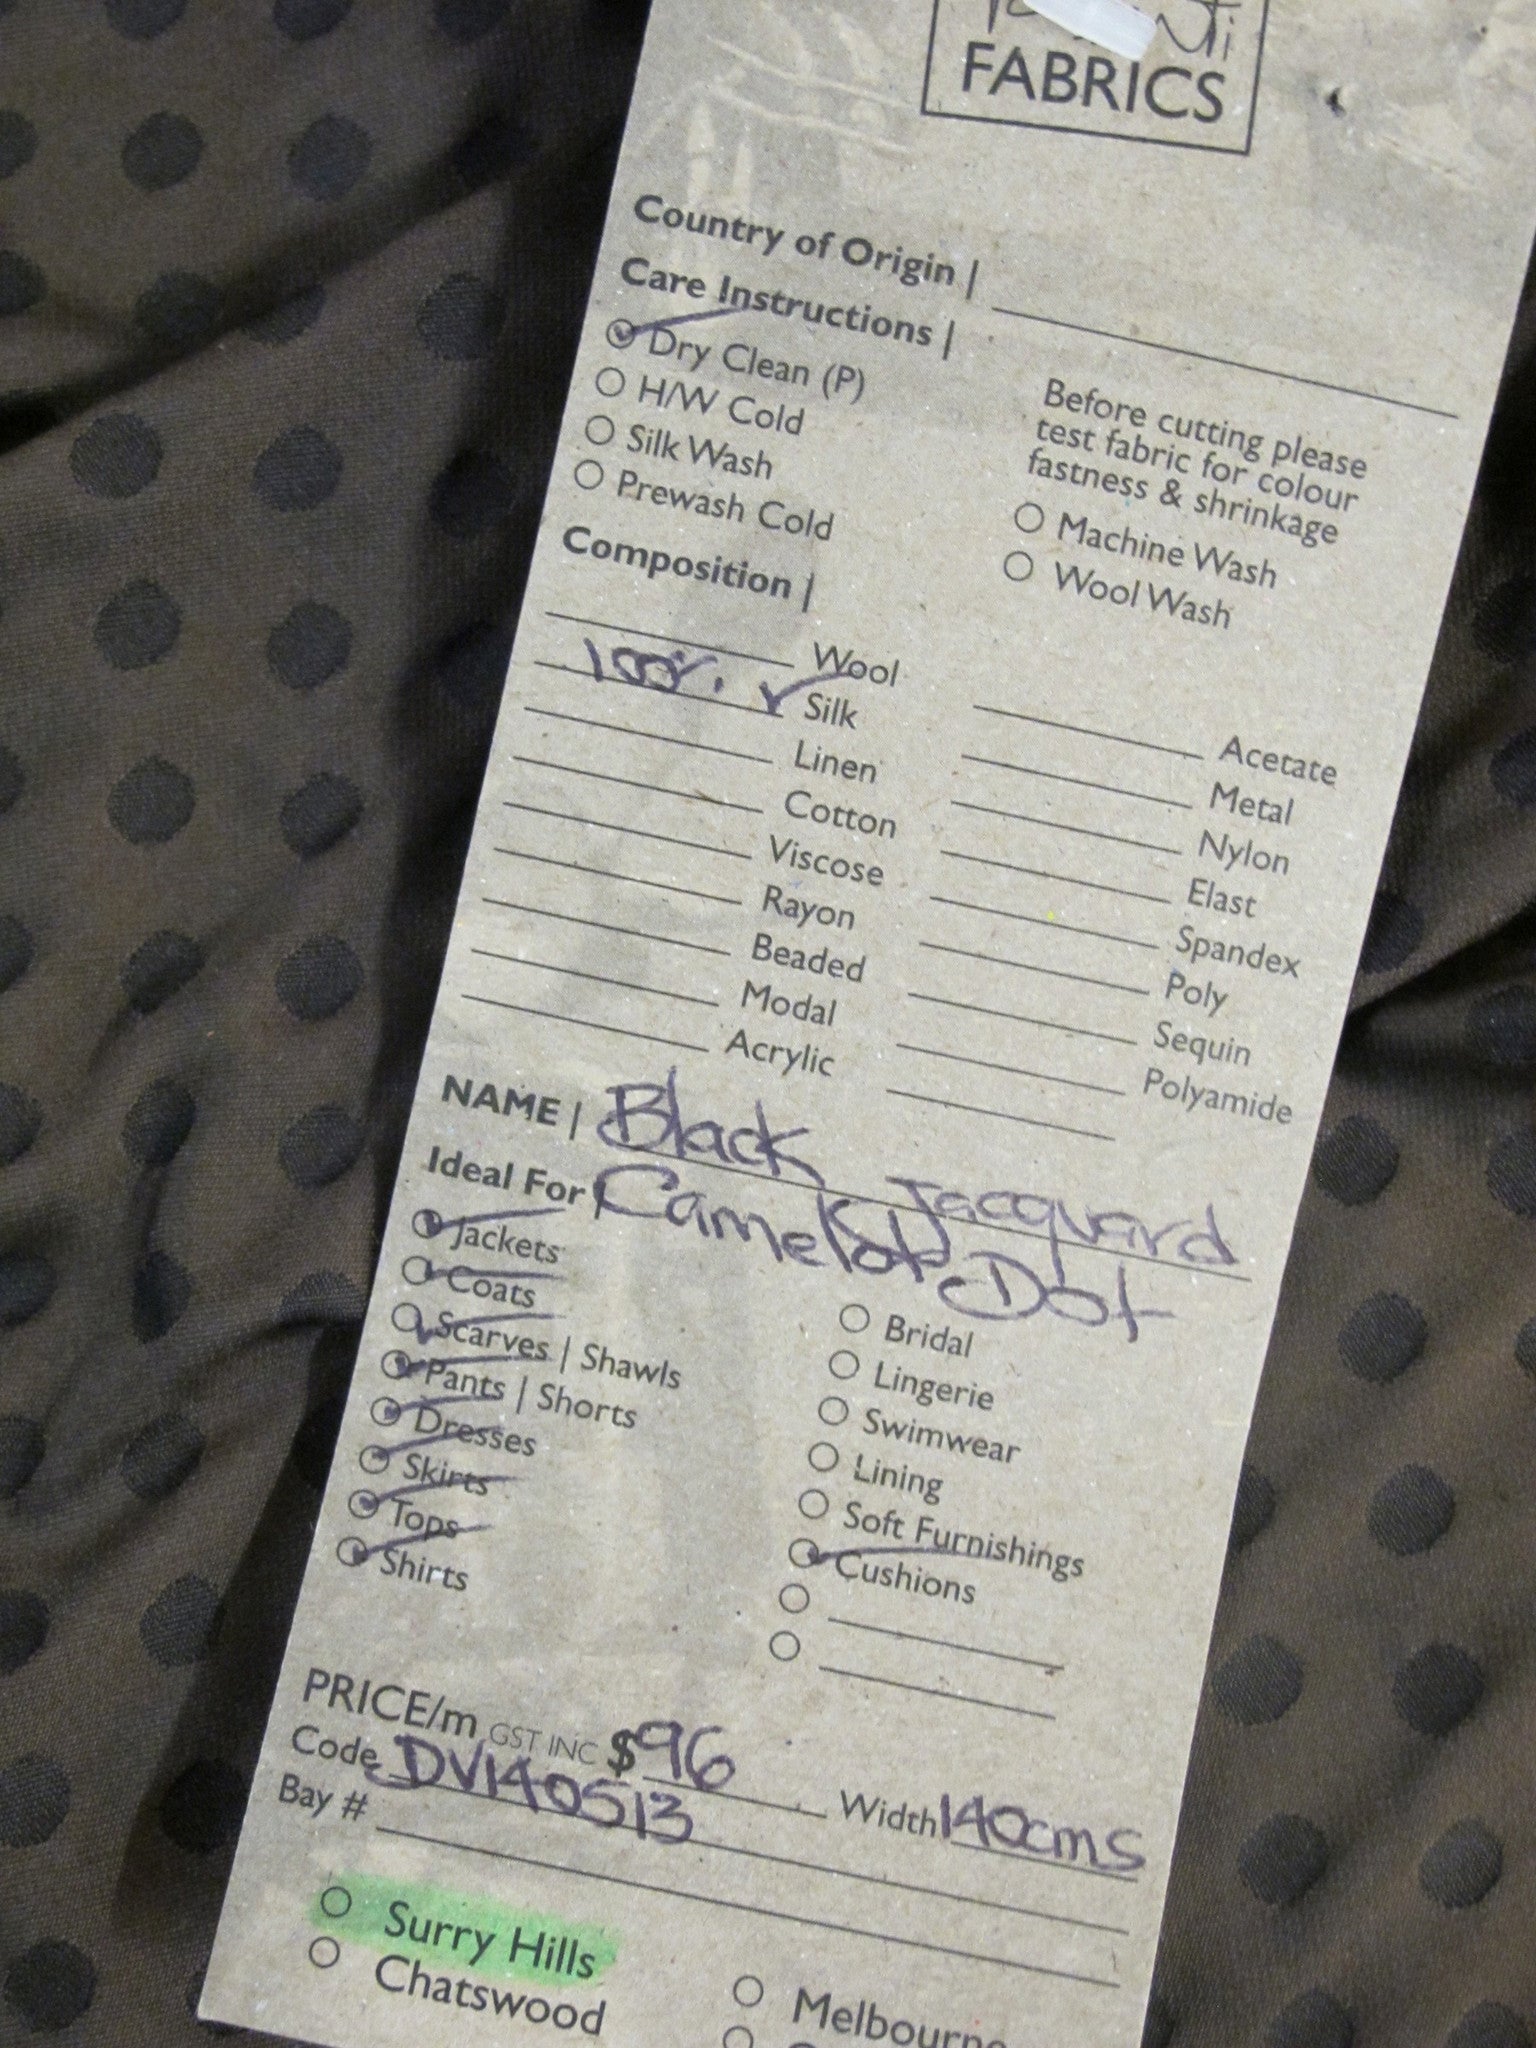 FABRICS
Country of Origin |
Care Instructions |
Dry Clean (P)
H/W Cold
Silk Wash
Prewash Cold
Before cutting please
test fabric for colour
fastness & shrinkage
Machine Wash
Wool Wash
Composition |
Wool
100% Silk
Linen
Cotton
Viscose
Rayon
Beaded
Modal
Acrylic
Acetate
Metal
Nylon
Elast
Spandex
Poly
Sequin
Polyamide
NAME | Black Jacquard
Camelot Dot
Ideal For |
Jackets
Coats
Scarves | Shawls
Pants | Shorts
Dresses
Skirts
Tops
Shirts
Bridal
Lingerie
Swimwear
Lining
Soft Furnishings
Cushions
PRICE/m GST INC $96 Width 140cms
Code DV140513
Bay #
Surry Hills
Chatswood
Melbourne